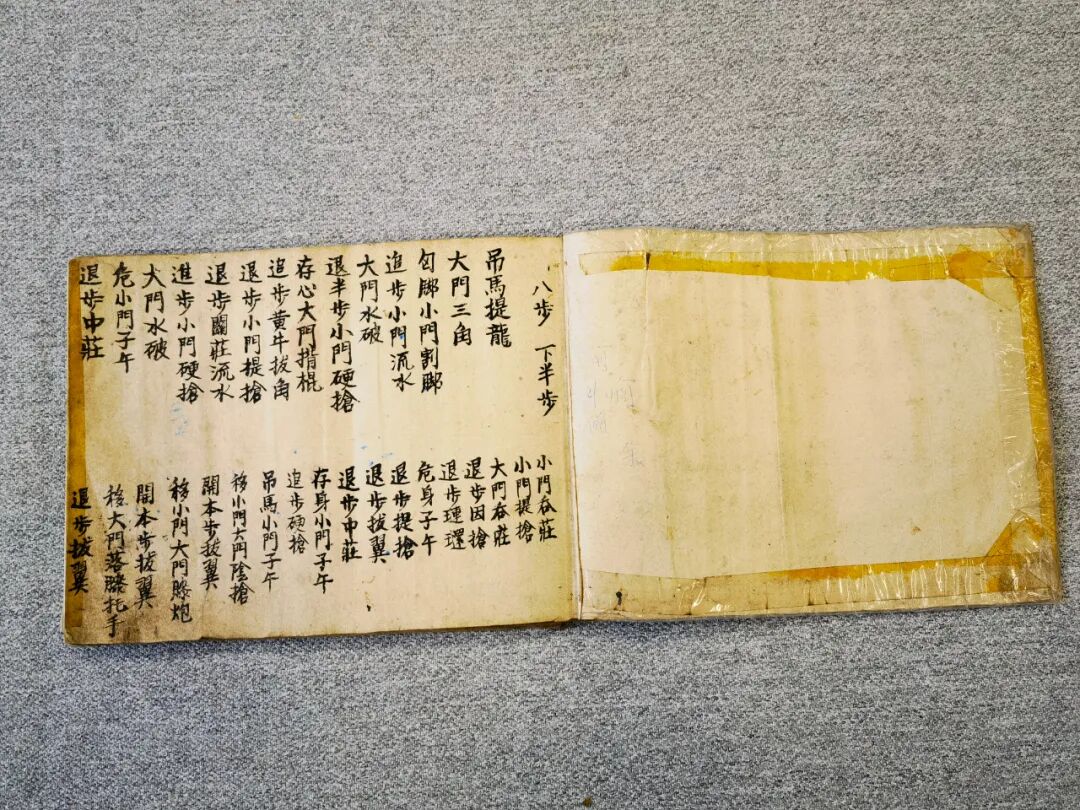 八步 下半步
吊馬提龍
大門三角
勾腳小門割腳
追步小門流水
大門水破
退半步小門硬搶
存心大門揹棍
追步黃牛拔角
退步小門提搶
退步關莊流水
進步小門硬搶
大門水破
危小門子午
退步中莊
小門吞莊
小門提搶
大門吞莊
退步因搶
退步連環
危身子午
退步提搶
退步拔翼
退步中莊
存身小門子午
追步硬搶
吊馬小門子午
移小門大門陰搶
開本步拔翼
移小門大門膝炮
開本步拔翼
移大門落膝托手
退步拔翼